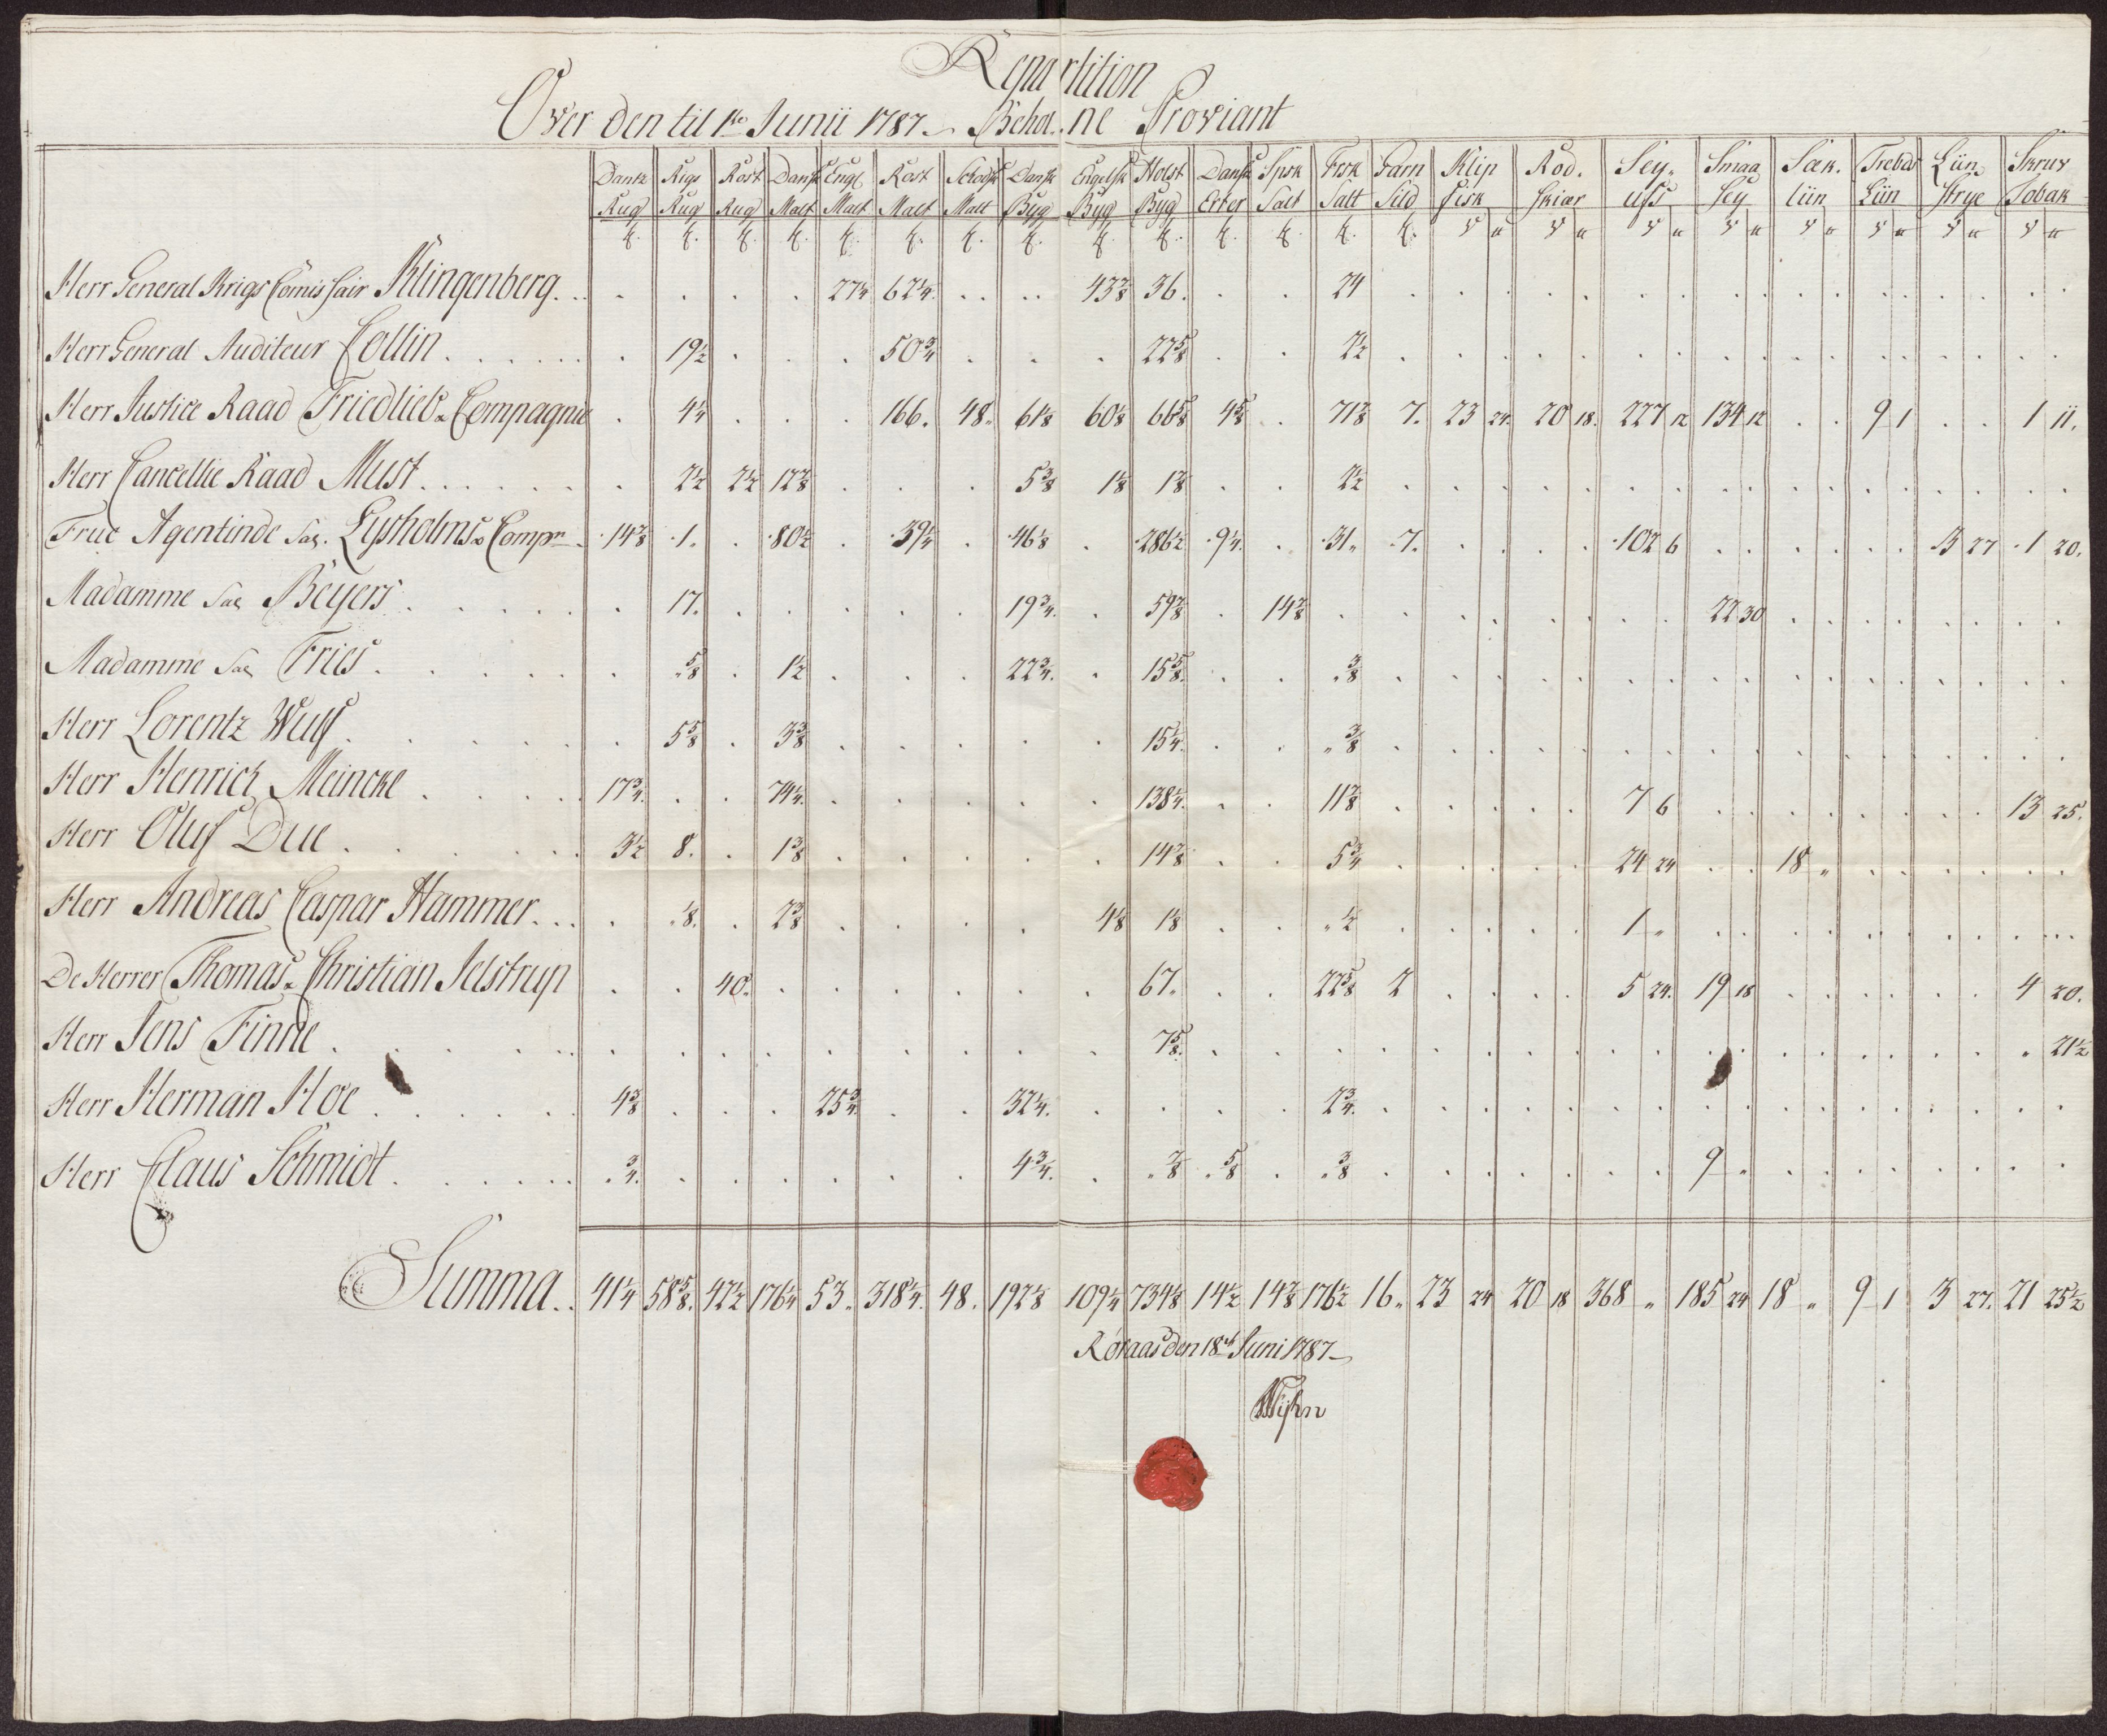 Repartition
Over den til 1te Junii 1787 Behol.ne Proviant
Dantz Rug | Riga Rug | Rost Rug | Dansk Malt | Engl Malt | Rost Malt | Malt | Dansk Byg | Engelsk Byg | Holst Byg | Dansk Erter | Spsk Salt | Fisk Salt | Tarn Sild | Klip fisk | Rod. skiær | Sey. ufs | Smaa sey | Sæk. liin | Liin | Liin Strye | Skruv Tobak
Herr General Krigs Comissair Klingenberg . . 27 1/4 62 1/4 . . 43 7/8 36 . . 24
Herr General Auditeur Collin . 19 1/2 . . . 50 3/4 . . . 22 5/8 . . 2 1/2
Herr Justice Raad Friedlieb & Compagnie . 4 1/4 . . . 166. 48. 61 1/8 60 1/8 66 5/8 4 5/8 . 71 7/8 7. 23 24. 20 18. 227 12 134 12 . . 9 1 . . 1 11.
Herr Cancellie Raad Must . 2 1/2 2 1/2 12 7/8 . . . 5 3/8 1 1/8 1 1/8 . . 2 1/2
Frue Agentinde Sal. Lysholms & Compn 14 7/8 1. . 80 1/2 . 39 1/4 . 46 1/8 . 286 1/2 9 1/4 . 31. 7. . . . . 102 6 . . . . . . 3 27 1 20.
Madamme Sal Beyers . 17. . . . . . 19 3/4 . 59 7/8 . 14 7/8 . . . . . . . . 22 30
Madamme Sal Fries . 5/8 . 1 1/2 . . . 22 3/4 . 15 5/8 . . 3/8
Herr Lorentz Wulf . 5 5/8 . 3 3/8 . . . . . 15 1/4 . . 3/8
Herr Henrich Meincke 17 3/4 . . 74 1/4 . . . . . 138 1/4 . . 11 7/8 . . . . . 7 6 . . . . . . . . 13 25.
Herr Oluf Due 3 1/2 8. . 1 3/8 . . . . . 14 7/8 . . 5 3/4 . . . . . 24 24 . . 18 "
Herr Andreas Caspar Hammer . 1/8 . 2 3/8 . . . . 4 1/8 1 1/8 . . 1/2 . . . . . 1 "
De Herrer Thomas & Christian Jelstrup . . 40. . . . . . . 67. . . 22 5/8 2 . . . . 5 24. 19 18 . . . . . . 4 20.
Herr Jens Finne . . . . . . . . . 7 5/8 . . . . . . . . . . . . . . . . . . " 21 1/2
Herr Herman Hoe 4 3/8 . . . 25 3/4 . . 32 1/4 . . . . 2 3/4
Herr Claus Schmidt 3/4 . . . . . . 4 3/4 . 7/8 5/8 . 3/8 . . . . . . . 9 "
Summa. 41 1/4 58 5/8 42 1/2 176 1/4 53. 318 1/4 48. 192 1/8 109 1/4 734 1/8 14 1/2 14 7/8 176 1/2 16. 23 24 20 18 368 " 185 24 18 " 9 1 3 27. 21 25 1/2
Røraas den 18de Juni 1787